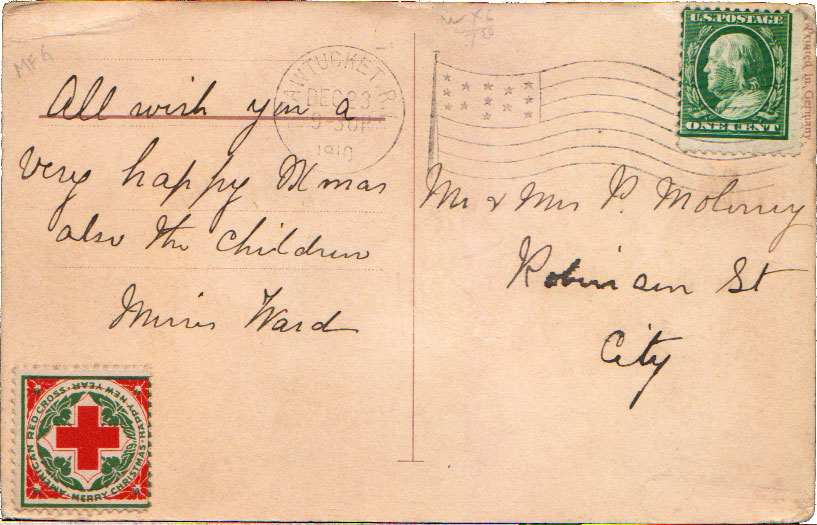 MF6
All wish you a
very happy Xmas
also the children
Ward
PAWTUCKET, R.I.
DEC 23
9-30P
1910
U.S. POSTAGE
ONE CENT
Printed in Germany
Mr & Mrs P.
Robinson St
City
AMERICAN RED CROSS
HAPPY NEW YEAR
MERRY CHRISTMAS